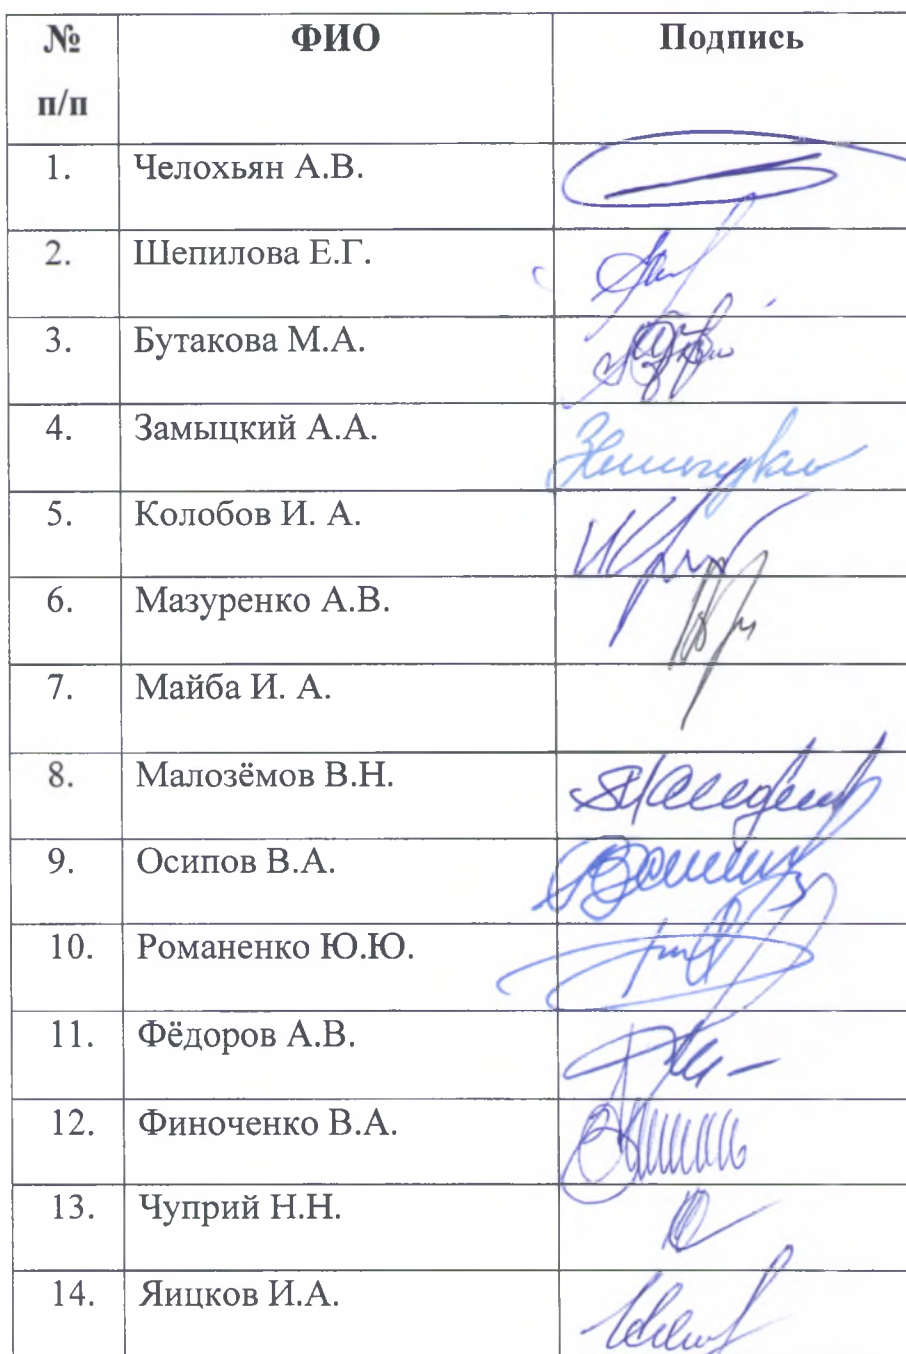 № п/п ФИО Подпись
1. Челохьян А.В.
2. Шепилова Е.Г.
3. Бутакова М.А.
4. Замыцкий А.А.
5. Колобов И. А.
6. Мазуренко А.В.
7. Майба И. А.
8. Малозёмов В.Н.
9. Осипов В.А.
10. Романенко Ю.Ю.
11. Фёдоров А.В.
12. Финоченко В.А.
13. Чуприй Н.Н.
14. Яицков И.А.